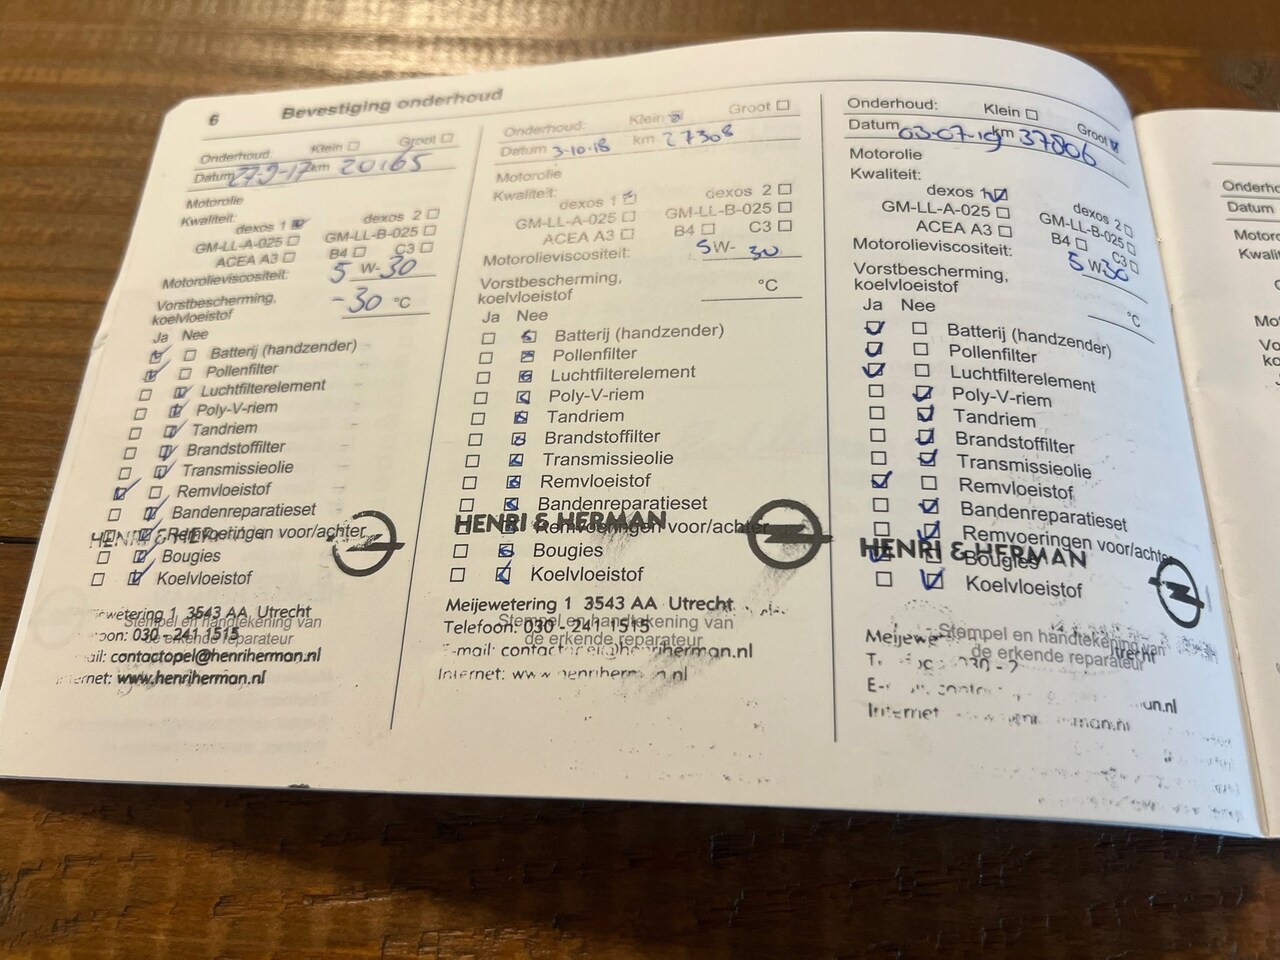 6 Bevestiging onderhoud
Onderhoud: Klein Groot
Datum 27-9-17 km 20165
Motorolie
Kwaliteit:
dexos 1 dexos 2
GM-LL-A-025 GM-LL-B-025
ACEA A3 B4 C3
Motorolieviscositeit: 5 W-30
Vorstbescherming,
koelvloeistof -30 °C
Ja Nee
Batterij (handzender)
Pollenfilter
Luchtfilterelement
Poly-V-riem
Tandriem
Brandstoffilter
Transmissieolie
Remvloeistof
Bandenreparatieset
Remvoeringen voor/achter
HENRI & HERMAN
Bougies
Koelvloeistof
1 3543 AA Utrecht
Stempel en handtekening van
030 - 241 1515
de erkende reparateur
contactopel@henriherman.nl
www.henriherman.nl
Onderhoud: Klein Groot
Datum 3-10-18 km 27308
Motorolie
Kwaliteit:
dexos 1 dexos 2
GM-LL-A-025 GM-LL-B-025
ACEA A3 B4 C3
Motorolieviscositeit: 5 W- 30
Vorstbescherming,
koelvloeistof °C
Ja Nee
Batterij (handzender)
Pollenfilter
Luchtfilterelement
Poly-V-riem
Tandriem
Brandstoffilter
Transmissieolie
Remvloeistof
Bandenreparatieset
HENRI & HERMAN
Remvoeringen voor/achter
Bougies
Koelvloeistof
Meijewetering 1 3543 AA Utrecht
Stempel en handtekening van
Telefoon: 030 - 241 1515
de erkende reparateur
Onderhoud: Klein Groot
Datum 03-07-19 km 37806
Motorolie
Kwaliteit:
dexos 1 dexos 2
GM-LL-A-025 GM-LL-B-025
ACEA A3 B4 C3
Motorolieviscositeit: 5 W 30
Vorstbescherming,
koelvloeistof °C
Ja Nee
Batterij (handzender)
Pollenfilter
Luchtfilterelement
Poly-V-riem
Tandriem
Brandstoffilter
Transmissieolie
Remvloeistof
Bandenreparatieset
Remvoeringen voor/achter
HENRI & HERMAN
Bougies
Koelvloeistof
Stempel en handtekening van
de erkende reparateur
Datum